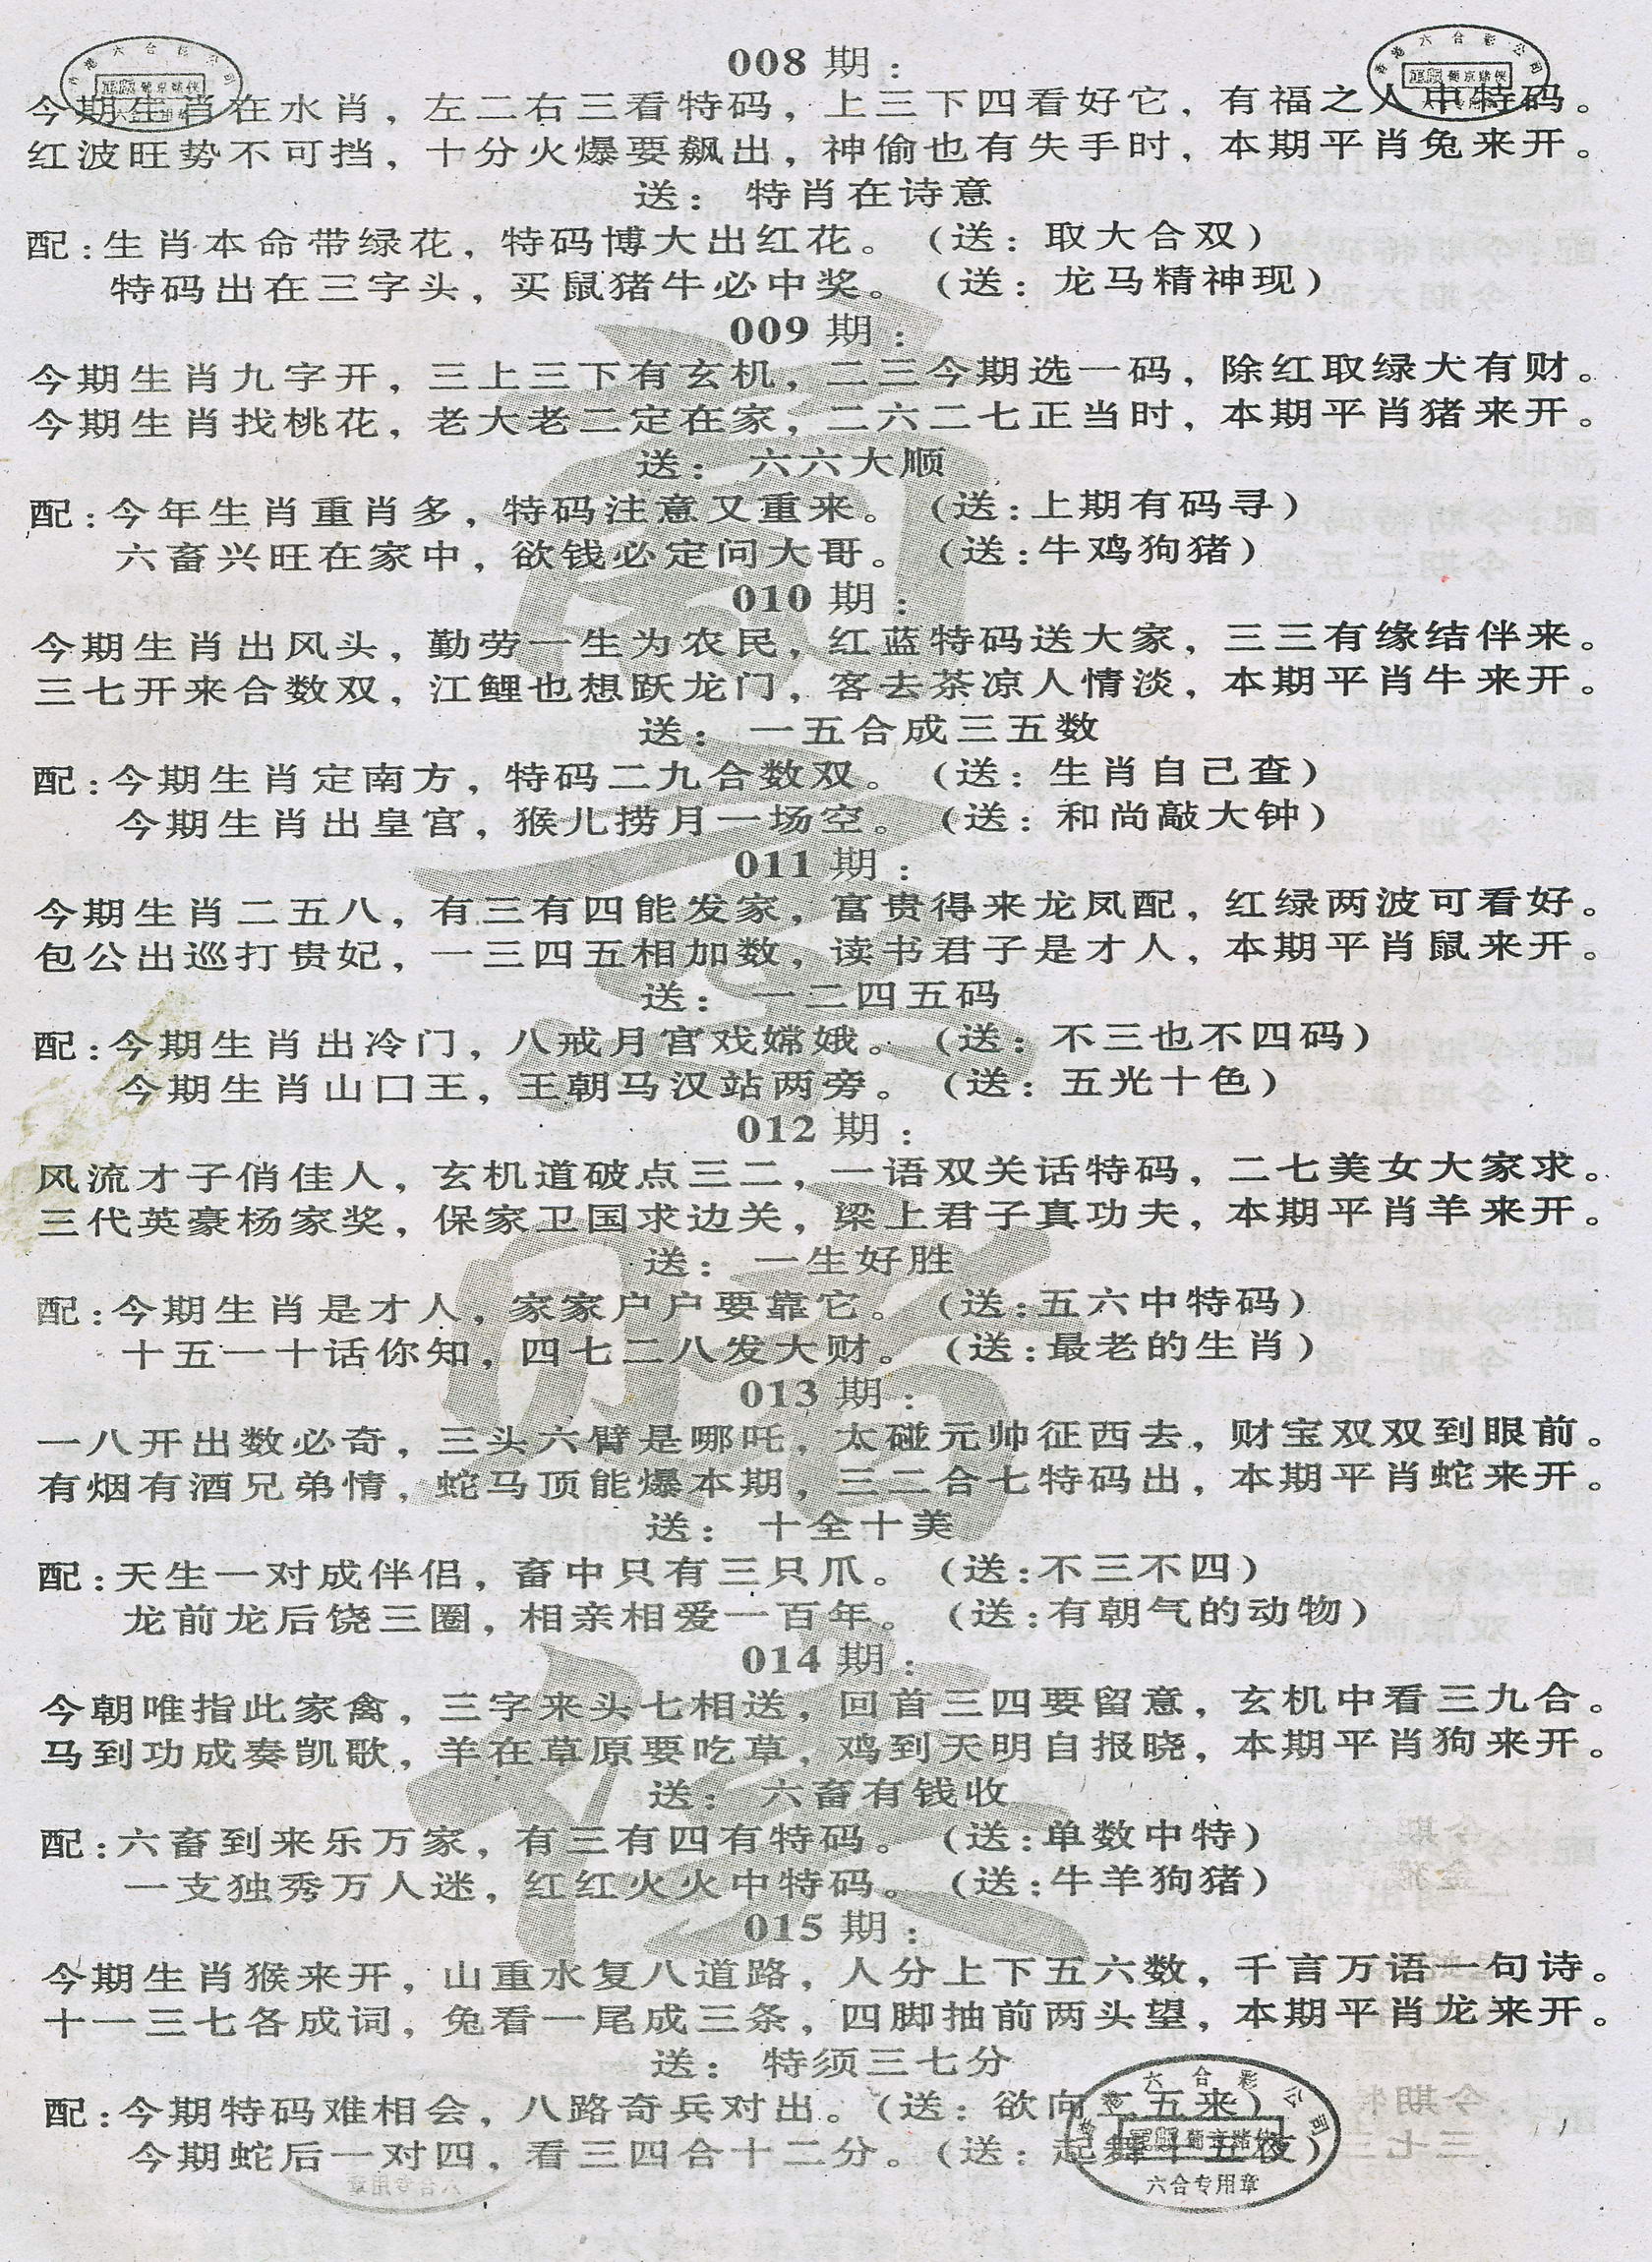 008 期：
今期生肖在水肖，左二右三看特码，上三下四看好它，有福之人中特码。
红波旺势不可挡，十分火爆要飙出，神偷也有失手时，本期平肖兔来开。
送： 特肖在诗意
配：生肖本命带绿花，特码博大出红花。（送：取大合双）
特码出在三字头，买鼠猪牛必中奖。（送：龙马精神现）
009 期：
今期生肖九字开，三上三下有玄机，二三今期选一码，除红取绿大有财。
今期生肖找桃花，老大老二定在家，二六二七正当时，本期平肖猪来开。
送： 六六大顺
配：今年生肖重肖多，特码注意又重来。（送：上期有码寻）
六畜兴旺在家中，欲钱必定问大哥。（送：牛鸡狗猪）
010 期：
今期生肖出风头，勤劳一生为农民，红蓝特码送大家，三三有缘结伴来。
三七开来合数双，江鲤也想跃龙门，客去茶凉人情淡，本期平肖牛来开。
送： 一五合成三五数
配：今期生肖定南方，特码二九合数双。（送：生肖自己查）
今期生肖出皇宫，猴儿捞月一场空。（送：和尚敲大钟）
011 期：
今期生肖二五八，有三有四能发家，富贵得来龙凤配，红绿两波可看好。
包公出巡打贵妃，一三四五相加数，读书君子是才人，本期平肖鼠来开。
送： 一二四五码
配：今期生肖出冷门，八戒月宫戏嫦娥。（送：不三也不四码）
今期生肖山口王，王朝马汉站两旁。（送：五光十色）
012 期：
风流才子俏佳人，玄机道破点三二，一语双关话特码，二七美女大家求。
三代英豪杨家奖，保家卫国求边关，梁上君子真功夫，本期平肖羊来开。
送： 一生好胜
配：今期生肖是才人，家家户户要靠它。（送：五六中特码）
十五一十话你知，四七二八发大财。（送：最老的生肖）
013 期：
一八开出数必奇，三头六臂是哪吒，太碰元帅征西去，财宝双双到眼前。
有烟有酒兄弟情，蛇马顶能爆本期，三二合七特码出，本期平肖蛇来开。
送： 十全十美
配：天生一对成伴侣，畜中只有三只爪。（送：不三不四）
龙前龙后饶三圈，相亲相爱一百年。（送：有朝气的动物）
014 期：
今朝唯指此家禽，三字来头七相送，回首三四要留意，玄机中看三九合。
马到功成奏凯歌，羊在草原要吃草，鸡到天明自报晓，本期平肖狗来开。
送： 六畜有钱收
配：六畜到来乐万家，有三有四有特码。（送：单数中特）
一支独秀万人迷，红红火火中特码。（送：牛羊狗猪）
015 期：
今期生肖猴来开，山重水复八道路，人分上下五六数，千言万语一句诗。
十一三七各成词，兔看一尾成三条，四脚抽前两头望，本期平肖龙来开。
送： 特须三七分
配：今期特码难相会，八路奇兵对出。（送：欲向三五来）
今期蛇后一对四，看三四合十二分。（送：起舞十五夜）
六合专用章